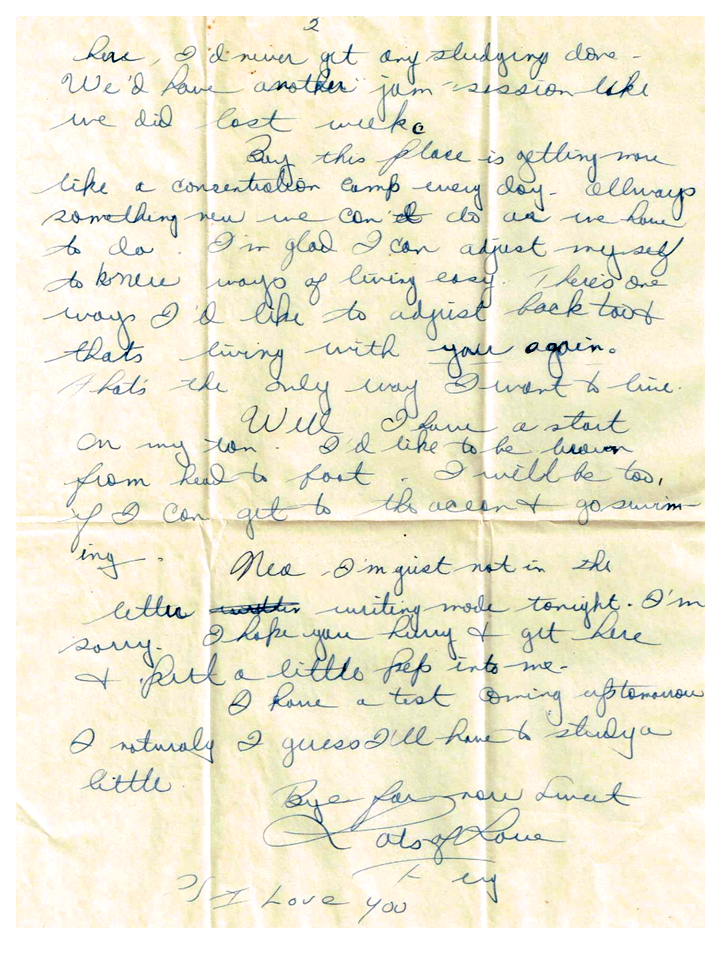 2
here, I'd never get any studying done -
We'd have another jam-session like
we did last week.
Boy this place is getting more
like a consentration camp every day. Allways
something new we can't do or we have
to do. I'm glad I can adjust myself
to new ways of living easy. There's one
ways I'd like to adjust back too &
thats living with you again.
That's the only way I want to live.
Well I have a start
on my tan. I'd like to be brown
from head to foot. I will be too,
if I can get to the ocean & go swim-
ing.
I'm just not in the
letter writing mode tonight. I'm
sorry. I hope you hurry & get here
& put a little pep into me-
I have a test coming up tomorrow
& naturaly I guess I'll have to study a
little
Bye for now Sweet
Lots of Love
PS I Love YOU